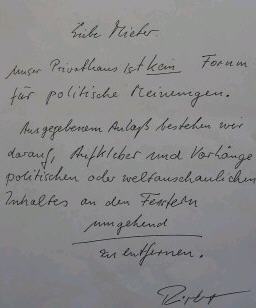 Liebe Mieter.
unser Privathaus ist kein Forum
für politische Meinungen.
Aus gegebenem Anlaß bestehen wir
darauf, Aufkleber und Vorhänge
politischen oder weltanschaulichen
Inhaltes an den Fenstern
umgehend
zu entfernen.